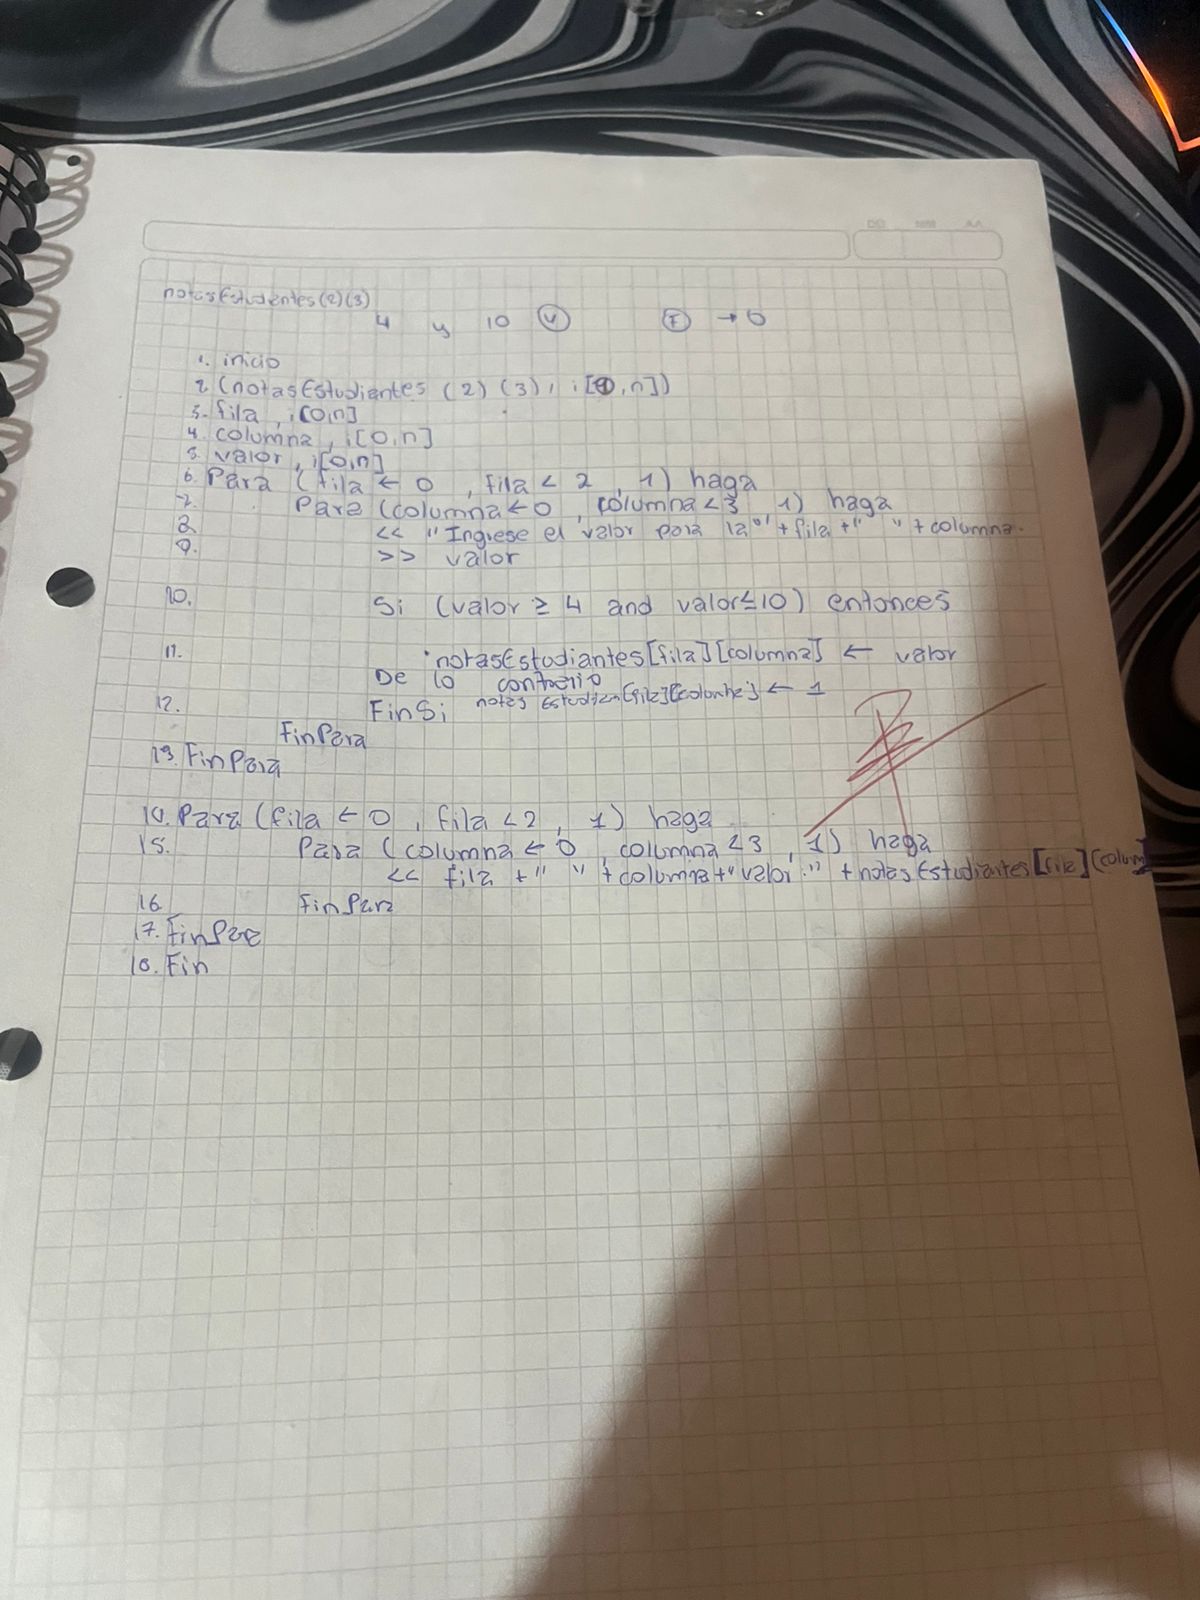 DD MM AA
notasEstudientes(2)(3)
4 y 10 (V) (F) → 0
1. inicio
2. (notasEstudiantes (2) (3), i[0,n])
3. fila, i[0,n]
4. columna, i[0,n]
5. valor, i[0,n]
6. Para (fila ← 0, fila < 2, 1) haga
7. Para (columna ← 0, columna < 3 1) haga
8. << "Ingrese el valor para la" + fila + " " + columna.
9. >> valor
10. Si (valor ≥ 4 and valor ≤ 10) entonces
11. notasEstudiantes[fila][columna] ← valor
De lo contrerio
12. FinSi notes [file][] ← 1
FinPara
13. FinPara
14. Para (fila ← 0, fila < 2, 1) haga
15. Para (columna ← 0, columna < 3, 1) haga
<< fila + " " + columna + "valor:" + notasEstudiantes[file][colum]
16. FinPara
17. FinPara
18. Fin